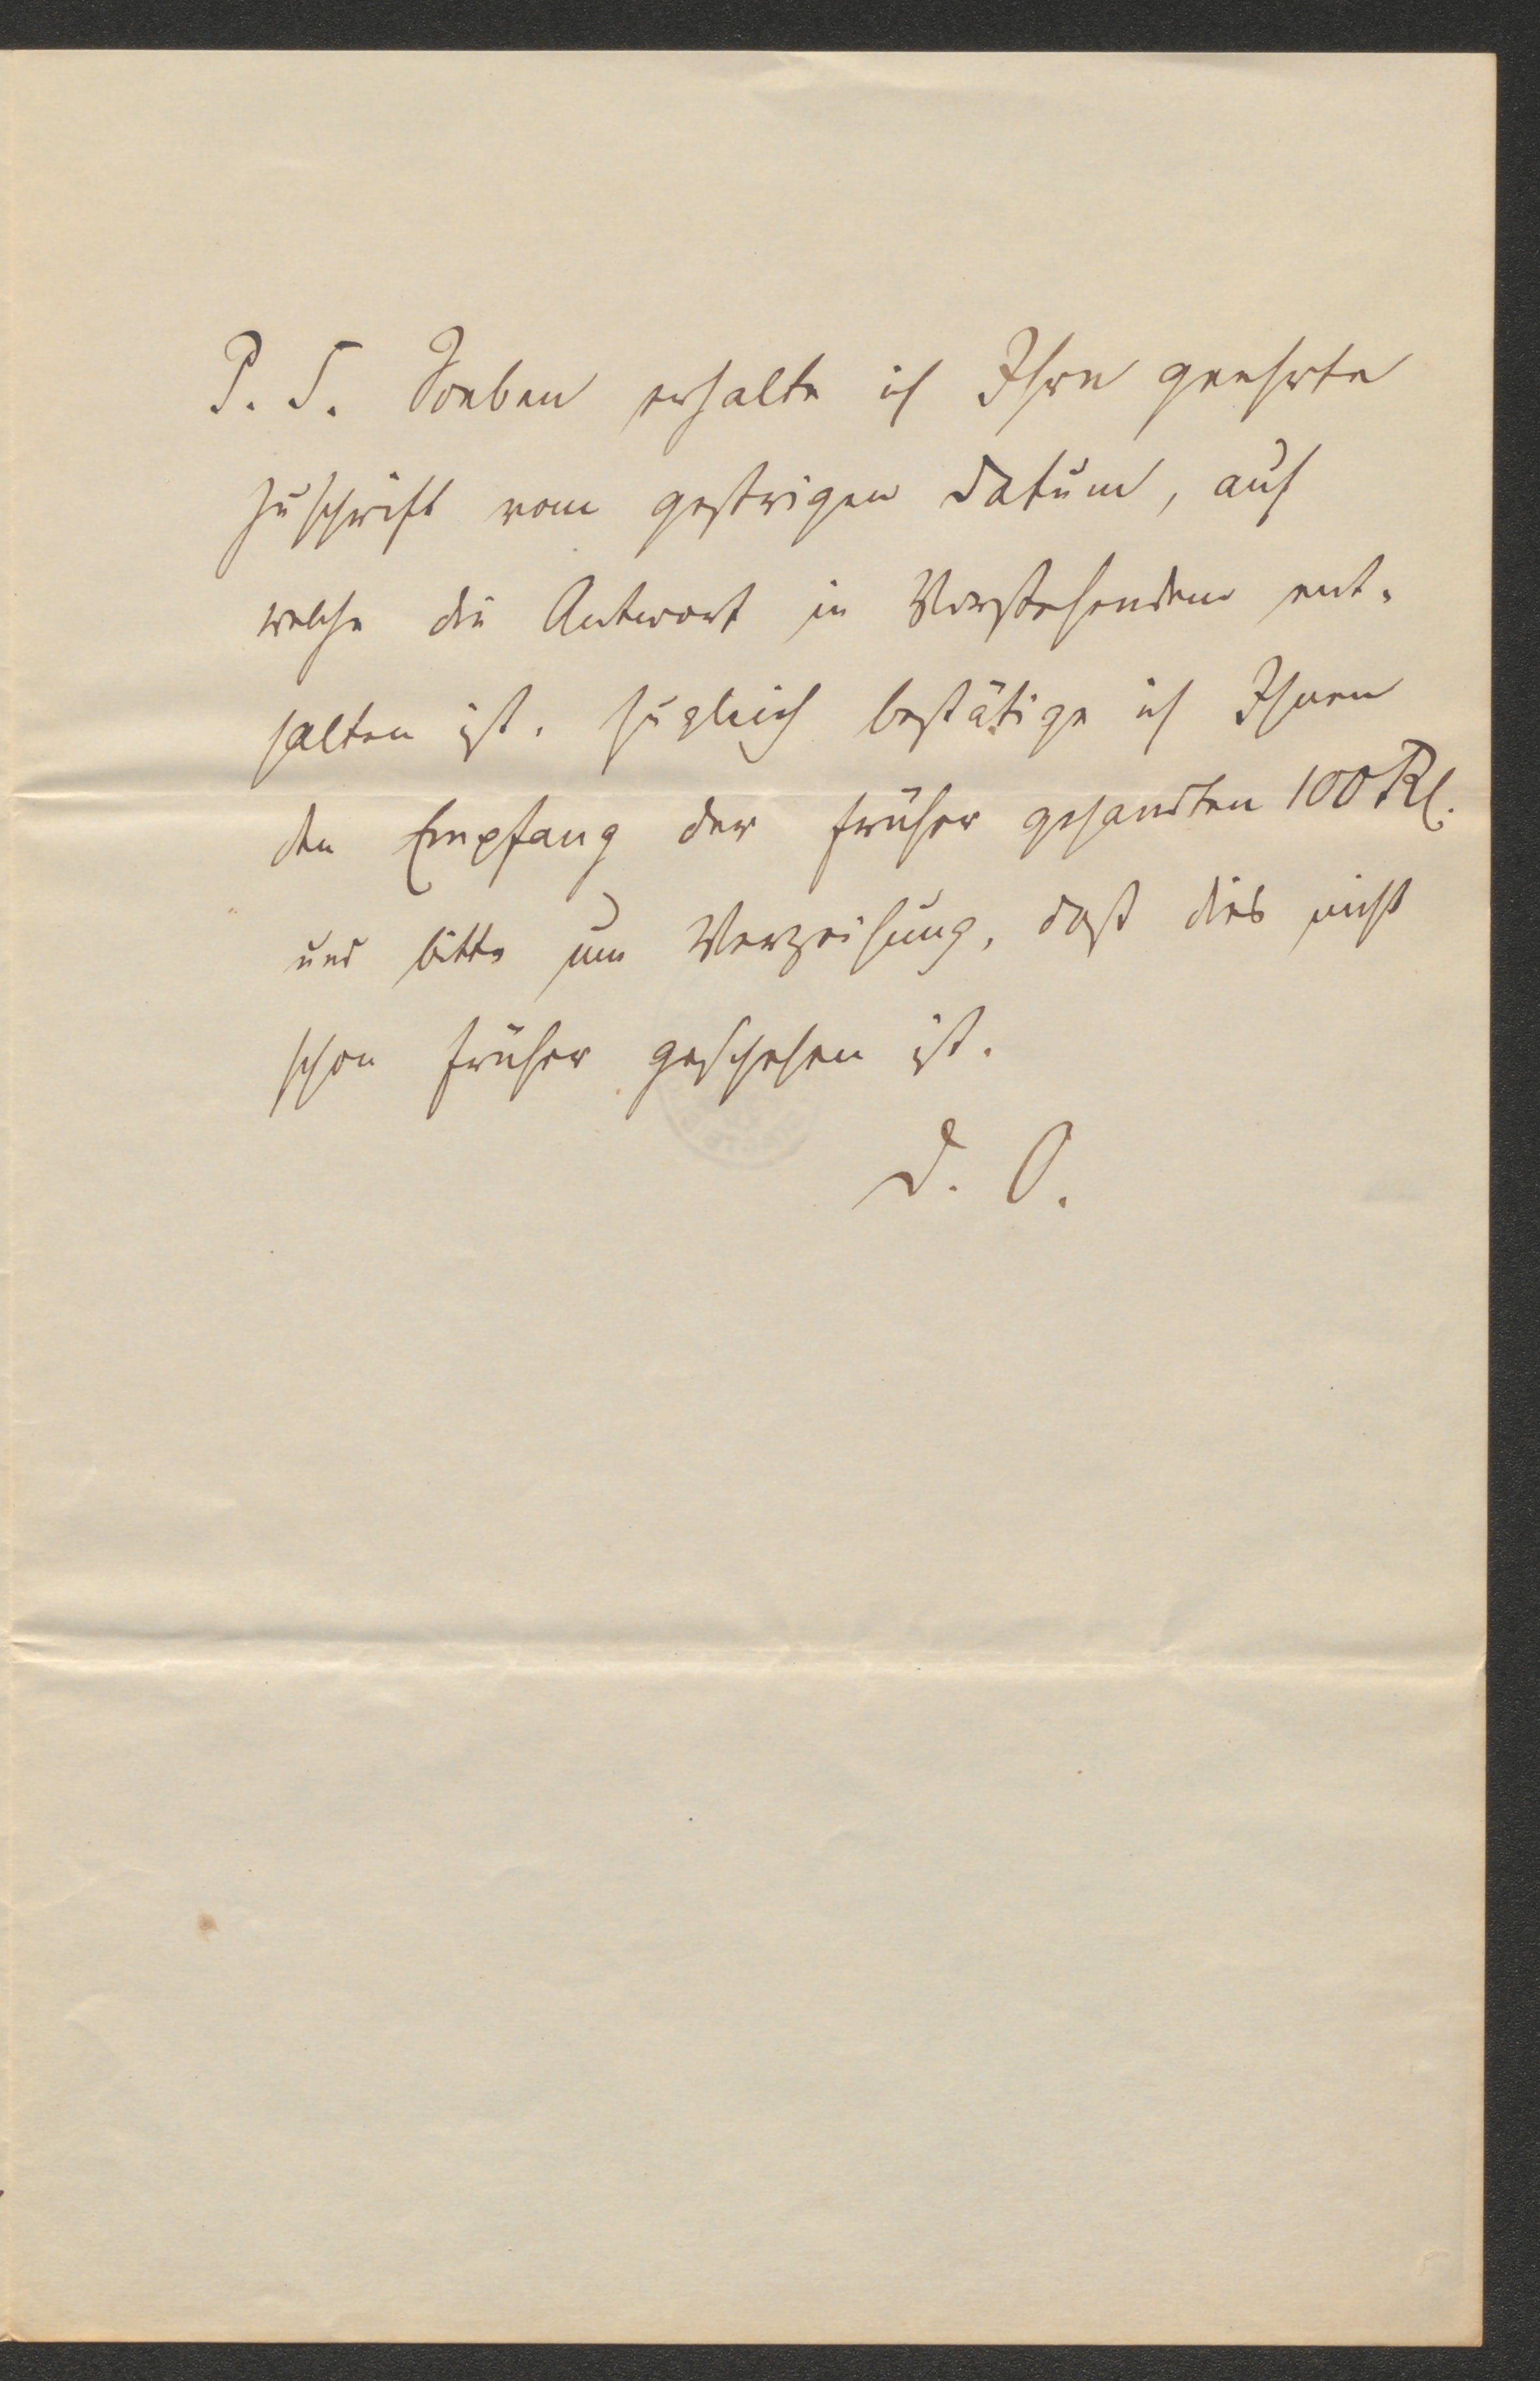 P. S. Soeben erhalte ich Ihre geehrte
Zuschrift vom gestrigen Datum, auf
welche die Antwort in Vorstehendem ent-
halten ist. Zugleich bestätige ich Ihnen
den Empfang der früher gesandten 100 Rl.
und bitte um Verzeihung, daß dies nicht
schon früher geschehen ist.
D. O.